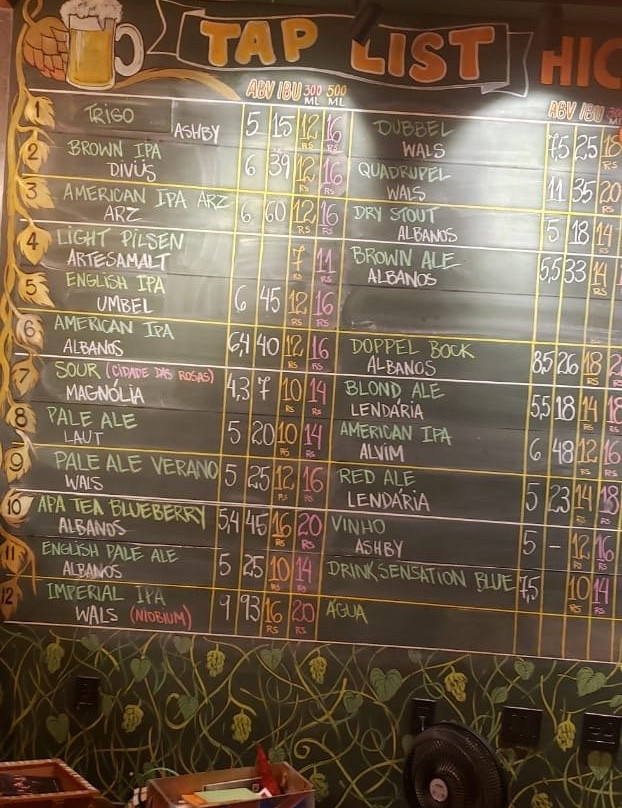 TAP LIST
HIC
ABV IBU 300 ML 500 ML
1 TRIGO ASHBY 5 15 12 R$ 16 R$
2 BROWN IPA DIVÜS 6 39 12 R$ 16 R$
3 AMERICAN IPA ARZ ARZ 6 60 12 R$ 16 R$
4 LIGHT PILSEN ARTESAMALT 7 R$ 11 R$
5 ENGLISH IPA UMBEL 6 45 12 R$ 16 R$
6 AMERICAN IPA ALBANOS 6,4 40 12 R$ 16 R$
7 SOUR (CIDADE DAS ROSAS) MAGNÓLIA 4,3 7 10 R$ 14 R$
8 PALE ALE LAUT 5 20 10 R$ 14 R$
9 PALE ALE VERANO WALS 5 25 12 R$ 16 R$
10 APA TEA BLUEBERRY ALBANOS 5,4 45 16 R$ 20 R$
11 ENGLISH PALE ALE ALBANOS 5 25 10 R$ 14 R$
12 IMPERIAL IPA WALS (NIOBIUM) 9 93 16 R$ 20 R$
ABV IBU
DUBBEL WALS 7,5 25 18 R$
QUADRUPEL WALS 11 35 20 R$
DRY STOUT ALBANOS 5 18 14 R$
BROWN ALE ALBANOS 5,5 33 14 R$
DOPPEL BOCK ALBANOS 8,5 26 18 R$
BLOND ALE LENDÁRIA 5,5 18 14 R$ 18 R$
AMERICAN IPA ALVIM 6 48 12 R$ 16 R$
RED ALE LENDÁRIA 5 23 14 R$ 18 R$
VINHO ASHBY 5 - 12 R$ 16 R$
DRINK SENSATION BLUE 7,5 10 R$ 14 R$
ÁGUA